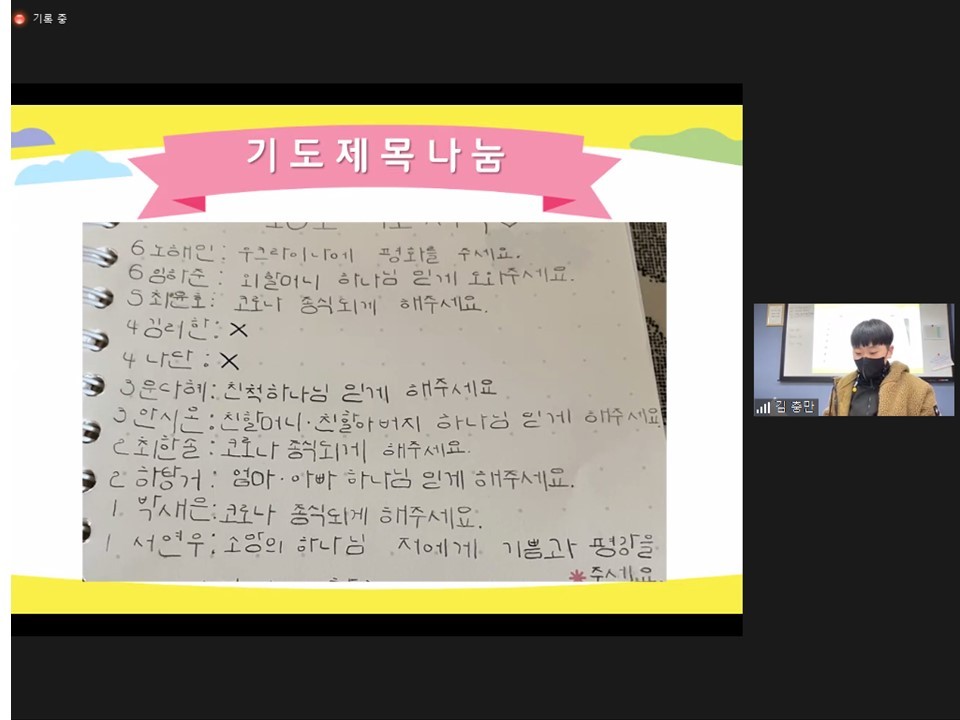 기록 중
기도제목나눔
6 노해민: 우크라이나에 평화를 주세요.
6 임하준: 외할머니 하나님 믿게 도와주세요.
5 최윤호: 코로나 종식되게 해주세요.
4 김러한: X
4 나단: X
3 문다혜: 친척하나님 믿게 해주세요
3 안시온: 친할머니·친할아버지 하나님 믿게 해주세요
2 최한솔: 코로나 종식되게 해주세요.
2 하탕거: 엄마·아빠 하나님 믿게 해주세요.
1. 박새은: 코로나 종식되게 해주세요.
1 서연우: 소망의 하나님 저에게 기쁨과 평강을
*주세요.
김 충만